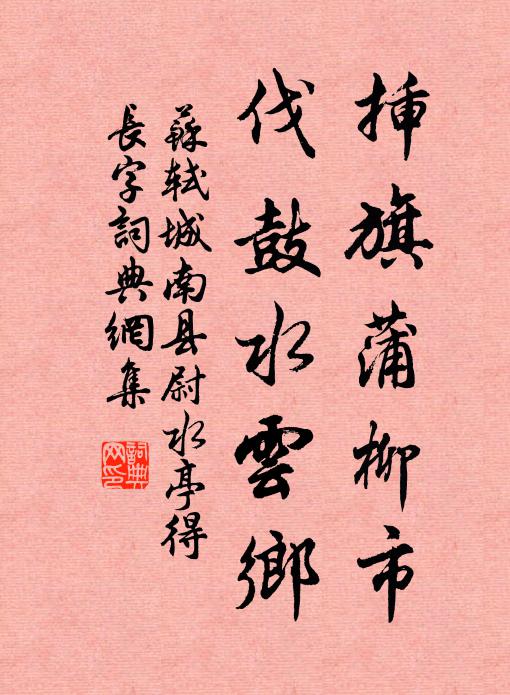 挿旗蒲柳市
伐鼓水雲鄉
蘇軾城南县尉水亭得
長字詞典網集
詞典网印